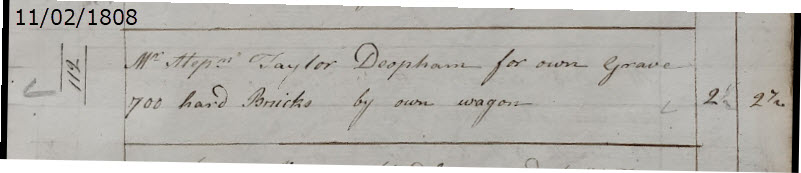 11/02/1808
Mr Stepn Taylor Deopham for own Grave
112
700 hard Bricks by own wagon 2